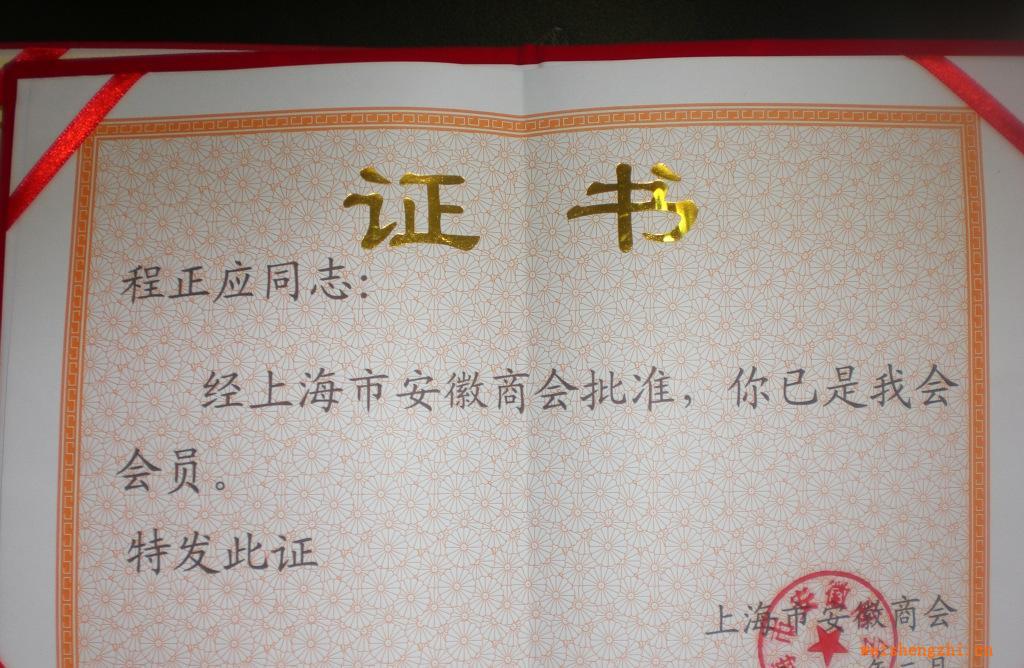 证书
程正应同志：
经上海市安徽商会批准，你已是我会
会员。
特发此证
上海市安徽商会